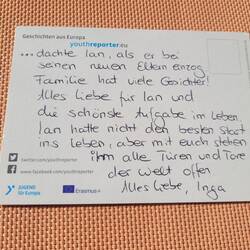 Geschichten aus Europa
youthreporter.eu
...dachte Ian, als er bei
seinen neuen Eltern einzog.
Familie hat viele Gesichter!
Alles Liebe für Ian und
die schönste Aufgabe im Leben.
Ian hatte nicht den besten Start
ins Leben, aber mit euch stehen
ihm alle Türen und Tore
der Welt offen
Alles Liebe, Inga
twitter.com/youthreporter
www.facebook.com/youthreporter
JUGEND
für Europa
Erasmus+